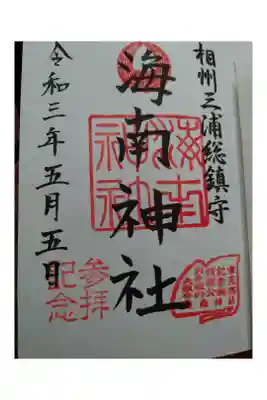 相州三浦総鎮守
海南神社
令和三年五月五日
海南神社
参拝
記念